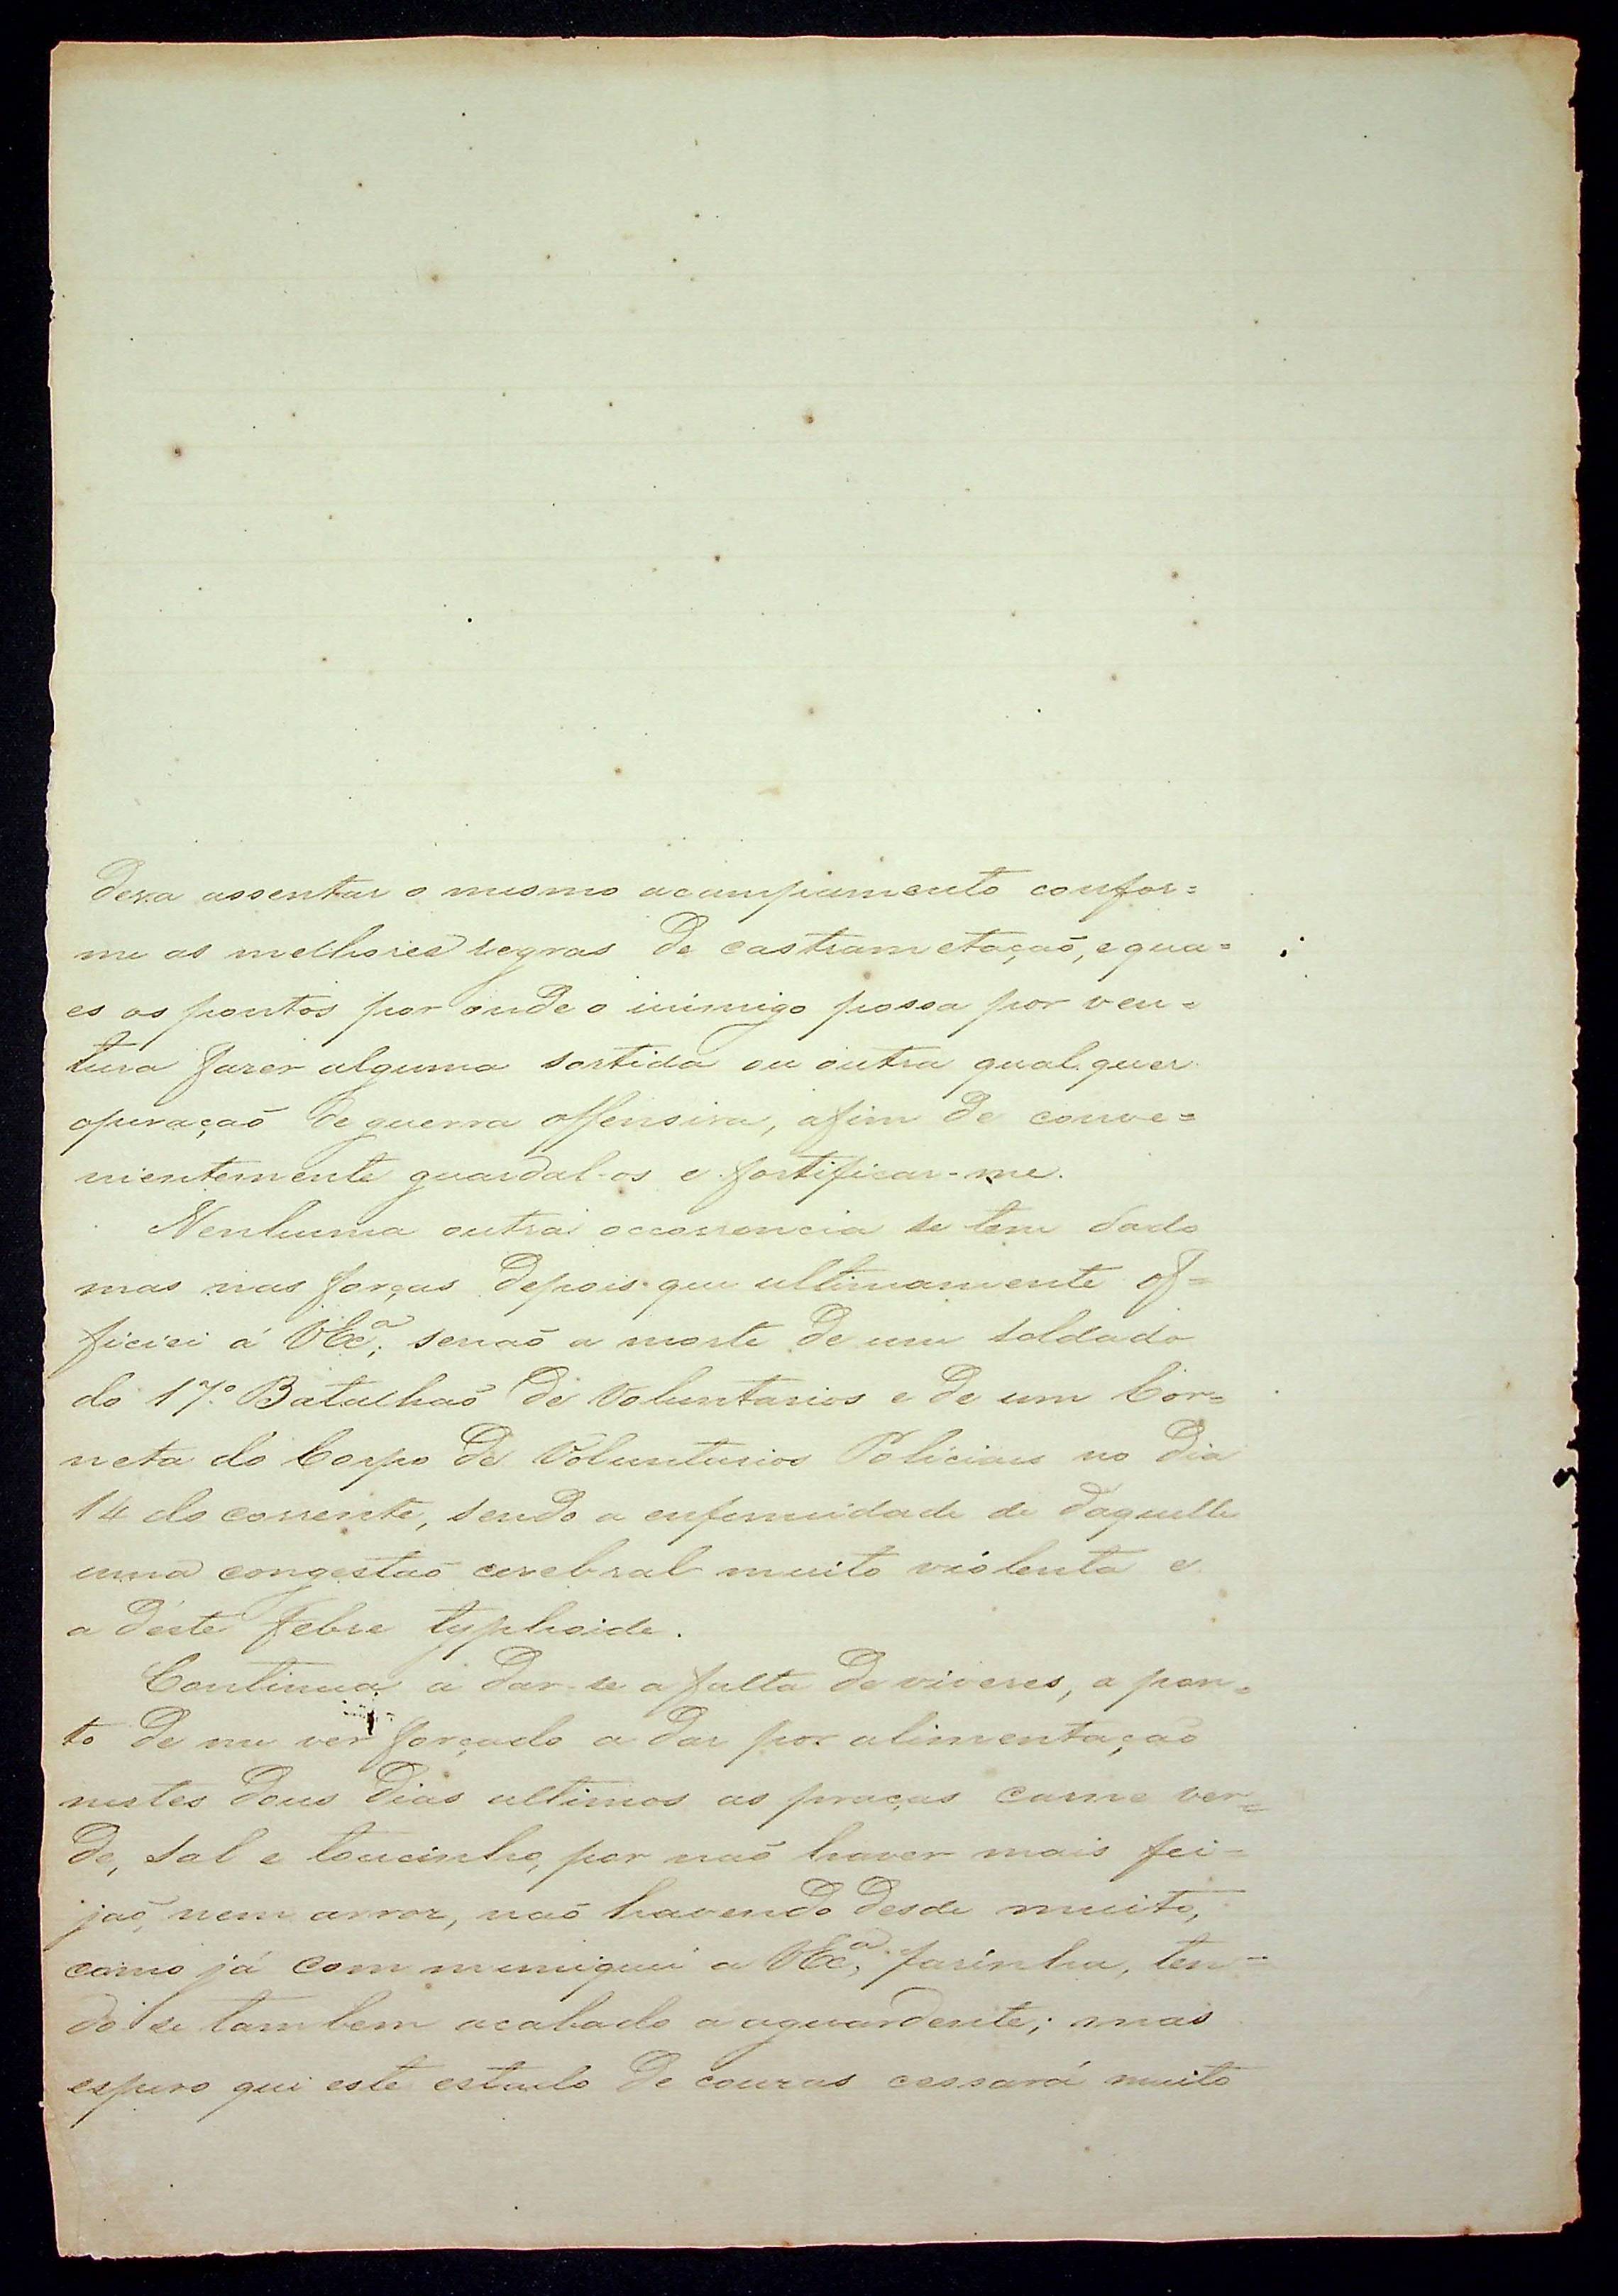 deva assentar o mesmo acampamento confor=
me as melhores regras de castrametação, e qua=
es os pontos por onde o inimigo possa por ven=
tura fazer alguma sortida ou outra qualquer
operação de guerra offensiva, afim de conve=
nientemente guardal-os e fortificar-me.
Nenhuma outra occorrencia se tem dado
mas nas forças depois que ultimamente of=
ficiei á VExª, senão a morte de um soldado
do 17º Batalhão de Voluntarios e de um Cor=
neta do Corpo de Voluntarios Policiaes no dia
14 do corrente, sendo a enfermidade de daquelle
uma congestão cerebral muito violenta e
a déste febre typhoide.
Continua a dar-se a falta de viveres, a pon=
to de me ver forçado a dar por alimentação
nestes dous dias ultimos as praças carne ver=
de, sal e toucinho, por não haver mais fei=
jão, nem arroz, não havendo desde muito,
como já communiquei a VExª, farinha, ten=
do se tambem acabado a aguardente; mas
espero que este estado de couzas cessará muito